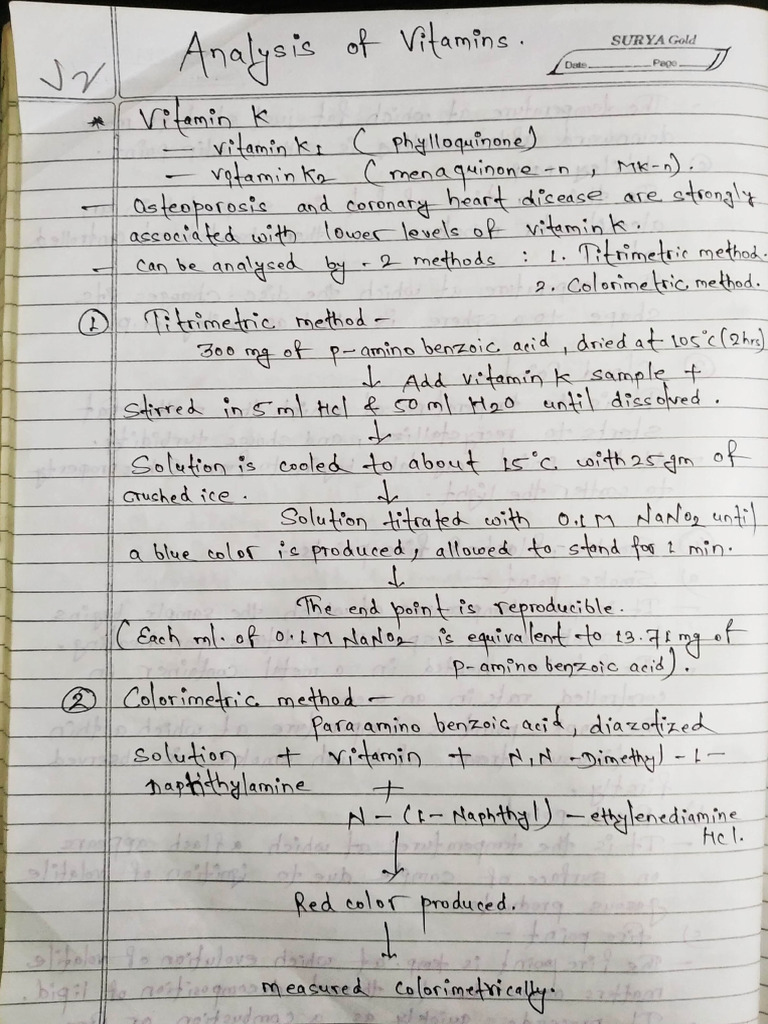 Analysis of Vitamins.
SURYA Gold
Date Page
* Vitamin K
— vitamin K1 (phylloquinone)
— vitamin K2 (menaquinone-n, MK-n).
— Osteoporosis and coronary heart disease are strongly
associated with lower levels of vitamin K.
— Can be analysed by - 2 methods : 1. Titrimetric method.
2. Colorimetric method.
① Titrimetric method —
300 mg of p-amino benzoic acid, dried at 105°C (2hrs)
↓ Add vitamin K sample +
stirred in 5 ml Hcl & 50 ml H2O until dissolved.
↓
Solution is cooled to about 15°C with 25 gm of
crushed ice. ↓
Solution titrated with 0.1 M NaNO2 until
a blue color is produced, allowed to stand for 1 min.
↓
The end point is reproducible.
(Each ml. of 0.1 M NaNO2 is equivalent to 13.71 mg of
p-amino benzoic acid).
② Colorimetric method —
Para amino benzoic acid, diazotized
solution + vitamin + N,N-Dimethyl-1-
naphthylamine +
N-(1-Naphthyl)-ethylenediamine
Hcl.
↓
Red color produced.
↓
measured colorimetrically.